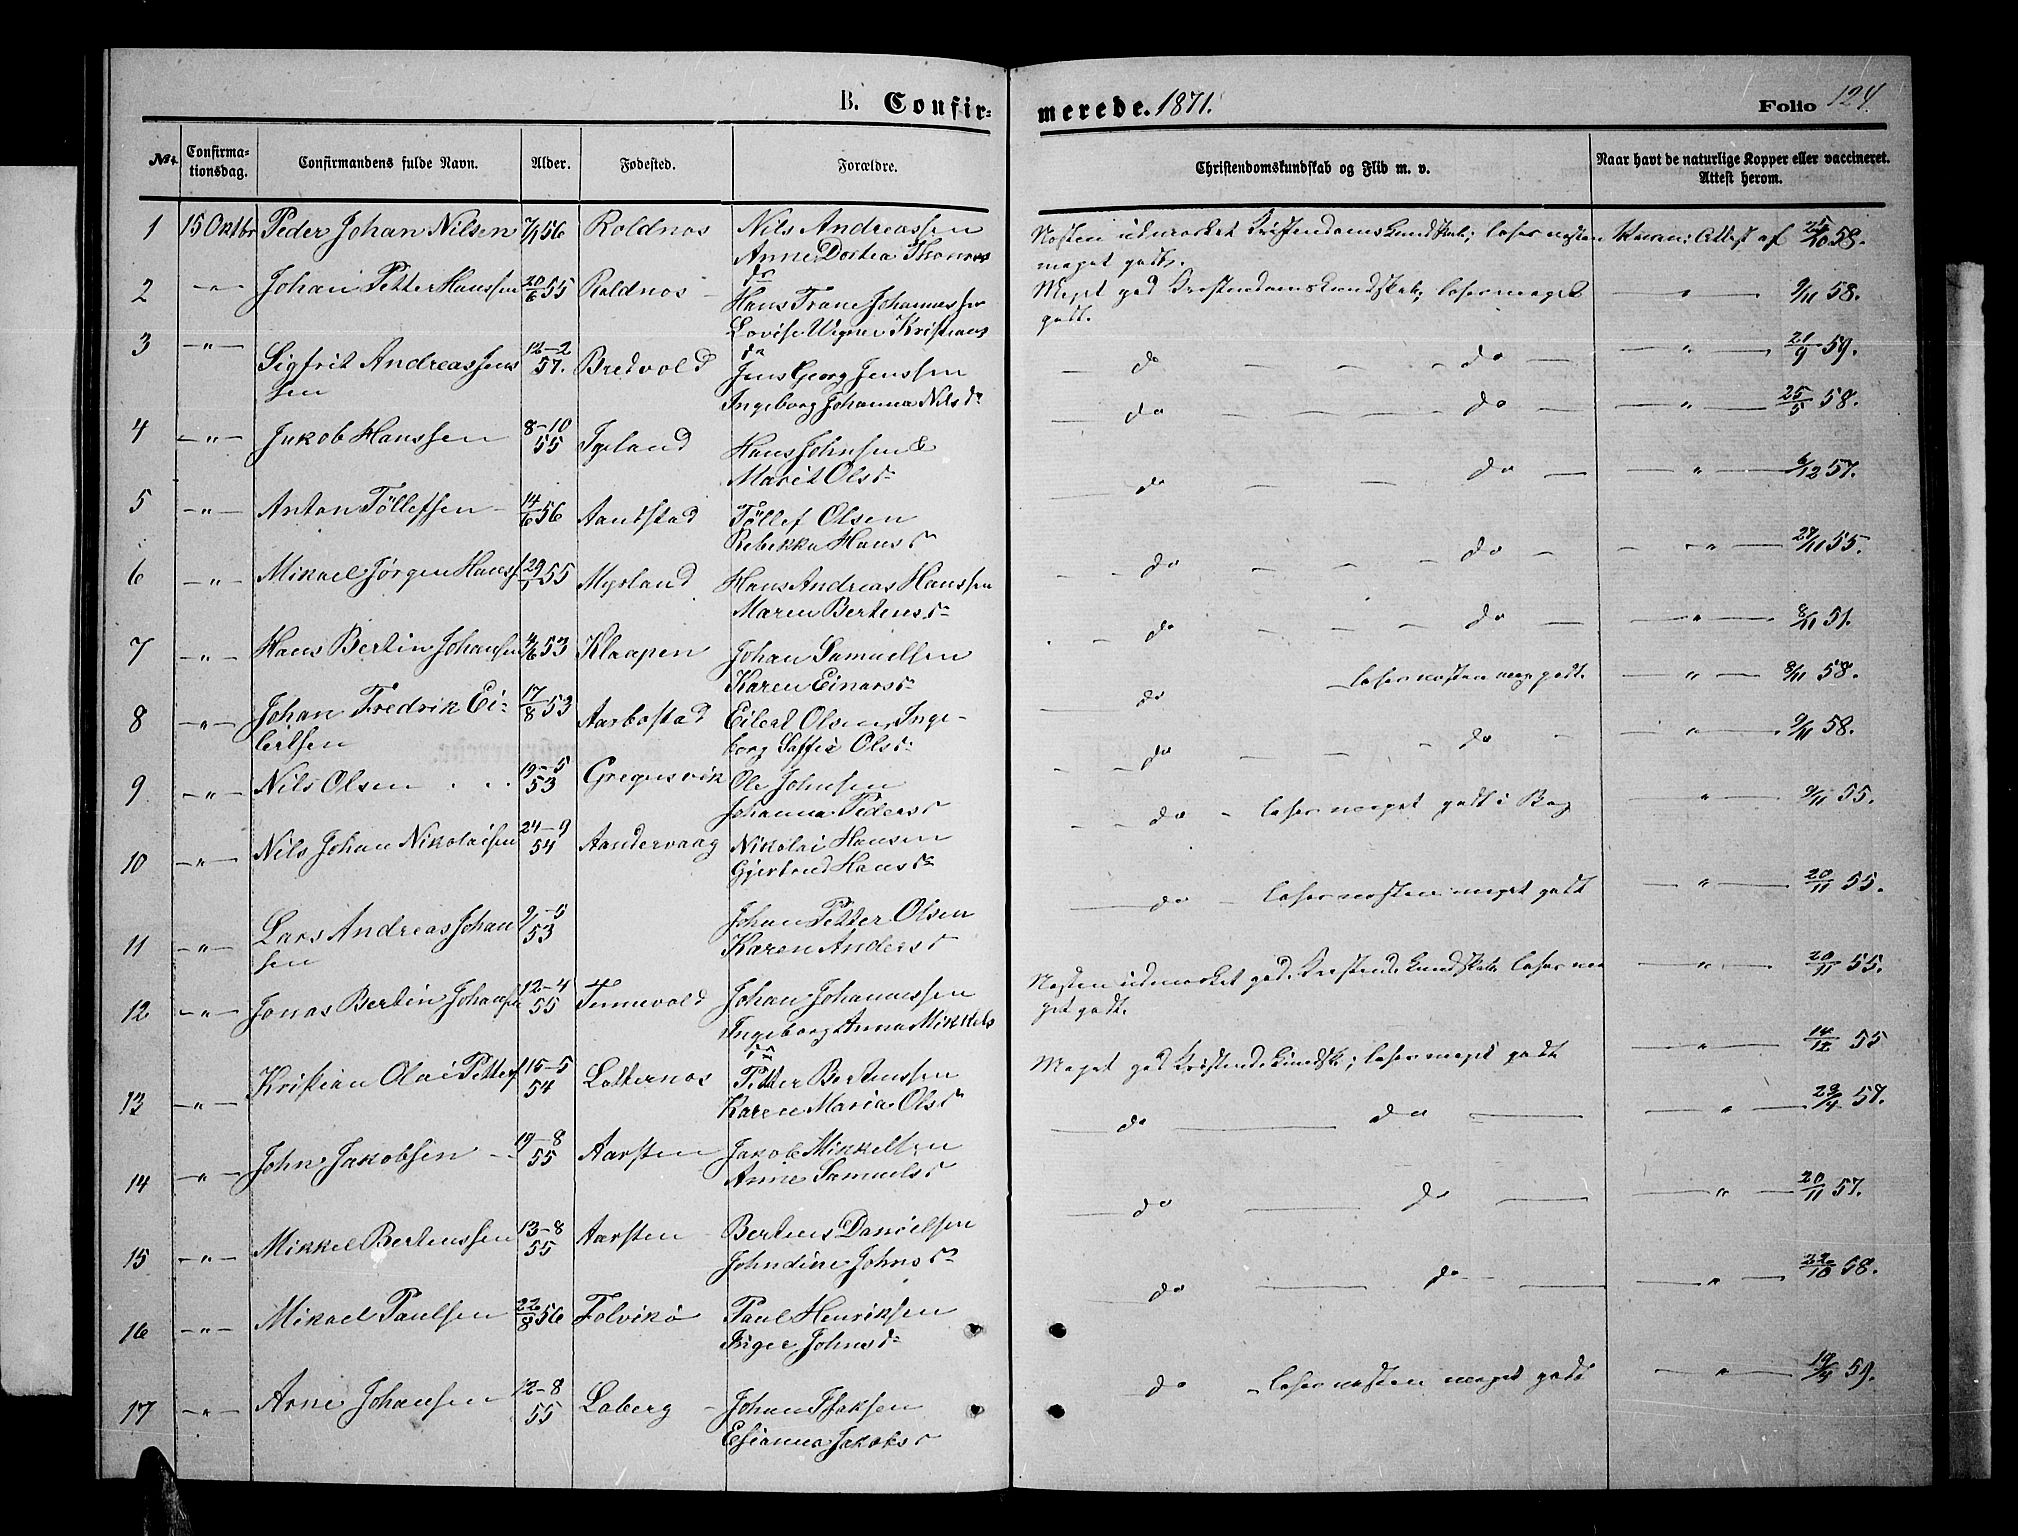 B. Confir=
merede. 1871.
Folio 124
No.
Confirma=
tionsdag.
Confirmandens fulde Navn.
Alder.
Fødested.
Forældre.
Christendomskundskab og Flid m. v.
Naar havt de naturlige Kopper eller vaccineret.
Attest herom.
1 15 Oktbr Peder Johan Nilsen 7/1 56 Roldnes Nils Andreassen
Anne Dortea Thomas
dr
Nesten udmerket Kristendomskundskab; læser nesten
meget godt.
Vaccin: Attest af 25/10 58.
2 -"- Johan Petter Hanssen 20/6 55 Roldnes - Hans Trane Johannessen
Lovise Kristians
dr
Meget god Kristendomskundskab; læser meget
godt.
" 9/11 58.
3 -"- Sigfrit Andreas Jens
sen
12-2
57. Bredvold Jens Georg Jenssen
Ingeborg Johanna Nilsdr
- do - - - do - -"- 21/9 59.
4 -"- Jakob Hanssen 8-10
55 Hans Johnsen &
Marit Olsdr
- do - - - do - -"- 25/5 58.
5 -"- Anton Töllefsen - 14/6 56 Aandstad Töllef Olsen
Rebekka Hansdr
- do do - -"- 6/12 57.
6 -"- Mikael Jørgen Hanss 29/1 55 Myrland Hans Andreas Hanssen
Maren Bertensdr
- do - - - do - -"- 27/11 55.
7 -"- Hans Bertin Johansen 4/6 53 Klaapen Johan Samuelsen
Karen Einarsdr
- do - - - do - -"- 8/11 51.
8 -"- Johan Fredrik Ei=
lertsen
17/8 53 Aarbostad Eilert Olsen, Inge-
borg Olsdr
- do læser nesten meg godt. -"- 8/11 58.
9 -"- Nils Olsen . . 19-5
53 Gregusvik Ole Johnsen
Johanna Pedersdr
- do - - - do - -"- 9/11 58.
10 -"- Nils Johan Nikolaisen 24-9
54 Aandervaag Nikolai Hansen
Gjertrud Hansdr
- do - læser meget godt i Bog " 9/11 55.
11 -"- Lars Andreas Johan
sen
9-5
53
Johan Petter Olsen
Karen Andersdr
do - læser nesten meget godt -"- 20/11 55.
12 -"- Jonas Bertin Johans 12-4
55 Tennevold Johan Johannessen
Ingeborg Anna Mikkels
dr
Nesten udmerket god Kristendkundskab, læser me
get godt.
-"- 20/11 55.
13 -"- Kristian Olai Petters 15-5
54 Latternes Petter Bertenssen
Karen Maria Olsdr
Meget god Kristendkundsk; læser meget godt
-"- 14/12 55
14 -"- John Jakobsen - 19-8
55 Aarsten Jakob Mikkelsen
Anne Samuelsdr
do do -"- 29/4 57.
15 -"- Mikkel Bertenssen 13-8
55 Aarsten - Bertens Danielsen
Johndine Johnsdr
do do -"- 20/11 57.
16 -"- Mikael Paulsen 22/8 56 Folvikø Paul Henriksen
Inger Johnsdr
do do -"- 22/10 58.
17 -"- Arne Johansen 12-8
55 Laberg - Johan Isaksen
Jakobsdr
do - læser nesten meget godt -"- 19/4 59.